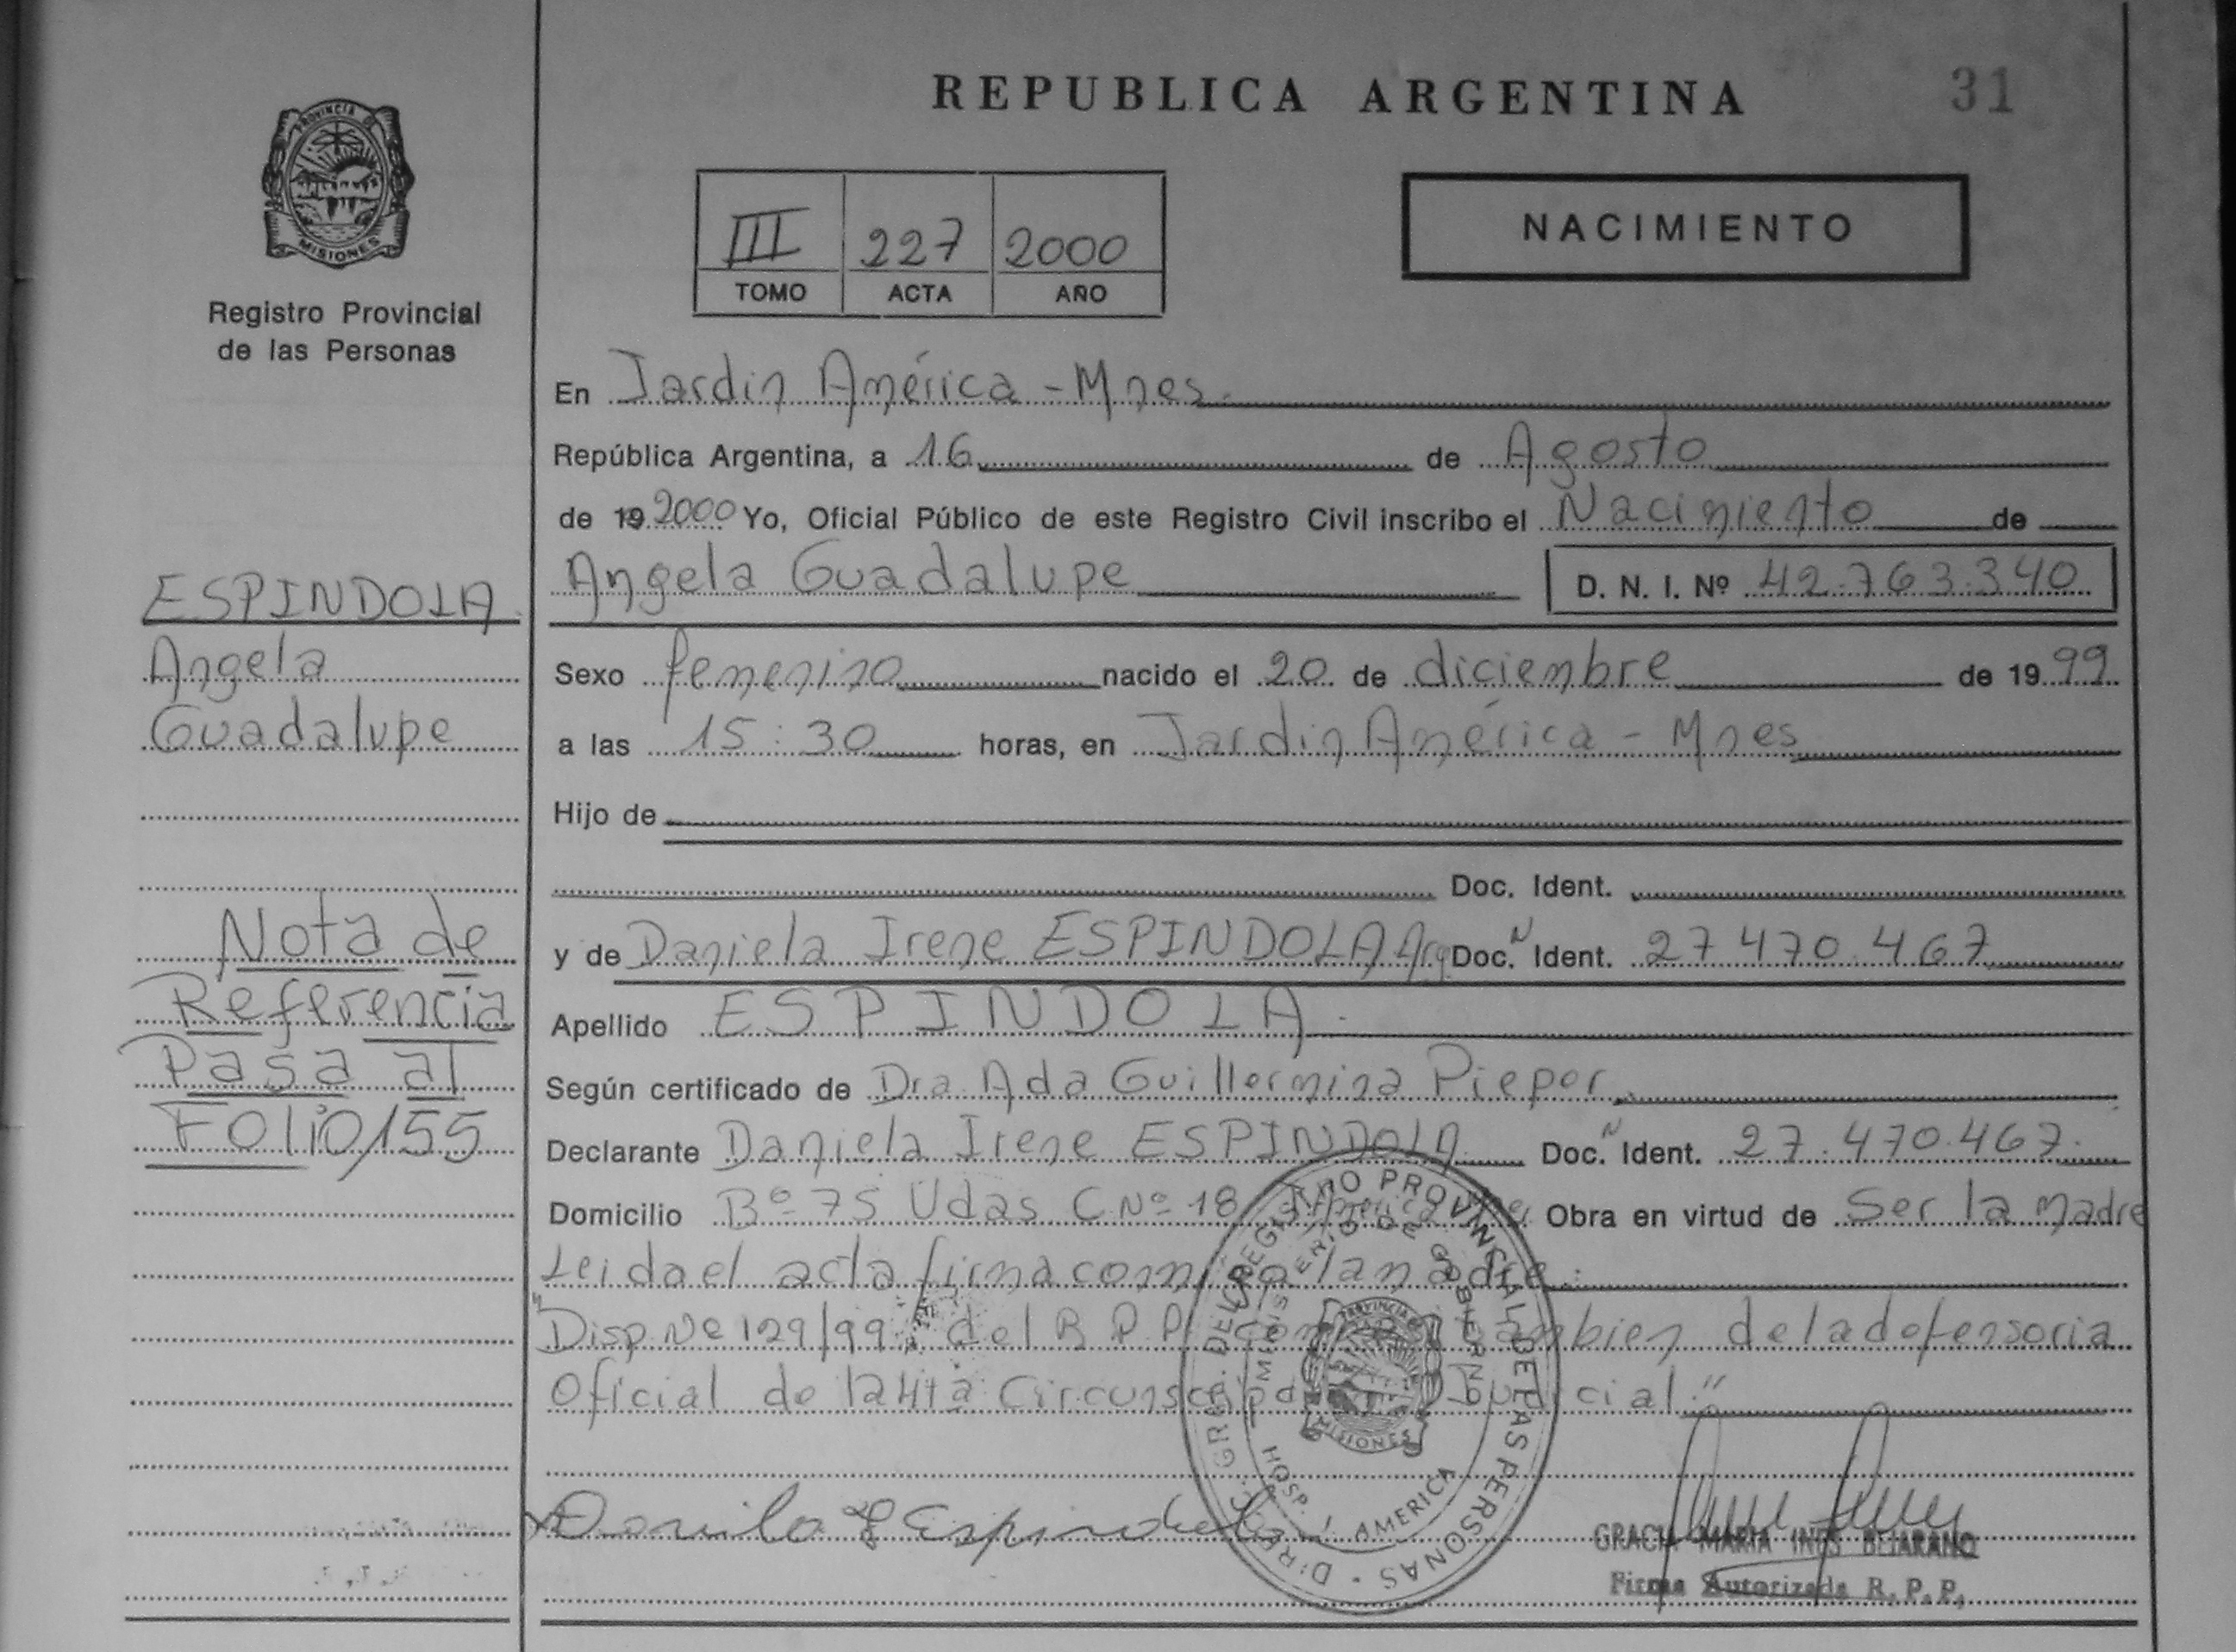 REPUBLICA ARGENTINA
31
PROVINCIA DE
MISIONES
Registro Provincial
de las Personas
III 227 2000
TOMO ACTA AÑO
NACIMIENTO
En Jardin América - Mnes.
República Argentina, a 16 de Agosto
de 19 2000 Yo, Oficial Público de este Registro Civil inscribo el Nacimiento de
Angela Guadalupe D. N. I. Nº 42.763.340
ESPINDOLA
Angela
Guadalupe
Sexo femenino nacido el 20 de diciembre de 1999
a las 15:30 horas, en Jardin América - Mnes
Hijo de
Doc. Ident.
y de Daniela Irene ESPINDOLA Arg Doc. N Ident. 27.470.467
Apellido ESPINDOLA.
Según certificado de Dra. Ada Guillermina Pieper
Declarante Daniela Irene ESPINDOLA Doc. N Ident. 27.470.467.
Domicilio Bº 75 Vdas C Nº 18 J. América Obra en virtud de Ser la madre
Leida el acta firma conmigo la madre.
"Disp Nº 129/99 del R P P como también de la defensoria
Oficial de la 4ta Circunscripción Judicial"
Nota de
Referencia
Pasa al
Folio/155
Daniela I Espindola
DIREC. GRAL. DEL REGISTRO PROVINCIAL DE LAS PERSONAS
MINISTERIO DE GOBIERNO
PROVINCIA
MISIONES
HOSP. J. AMERICA
GRACIA MARIA INES BEJARANO
Firma Autorizada R. P. P.